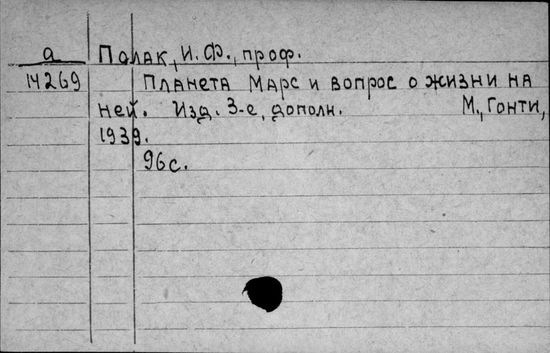 а Полак, И. Ф., проф.
14269 Планета Марс и вопрос о жизни на
ней. Изд. 3-е, дополн. М., Гонти,
1939.
96 с.